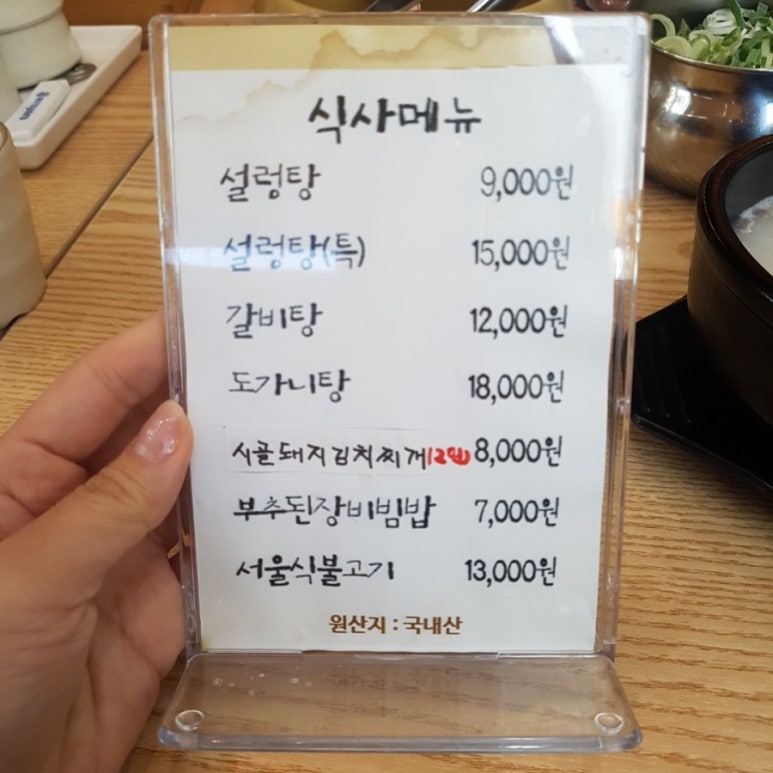 식사메뉴
설렁탕 9,000원
설렁탕(특) 15,000원
갈비탕 12,000원
도가니탕 18,000원
시골돼지김치찌개 8,000원
부추된장비빔밥 7,000원
서울식불고기 13,000원
원산지 : 국내산